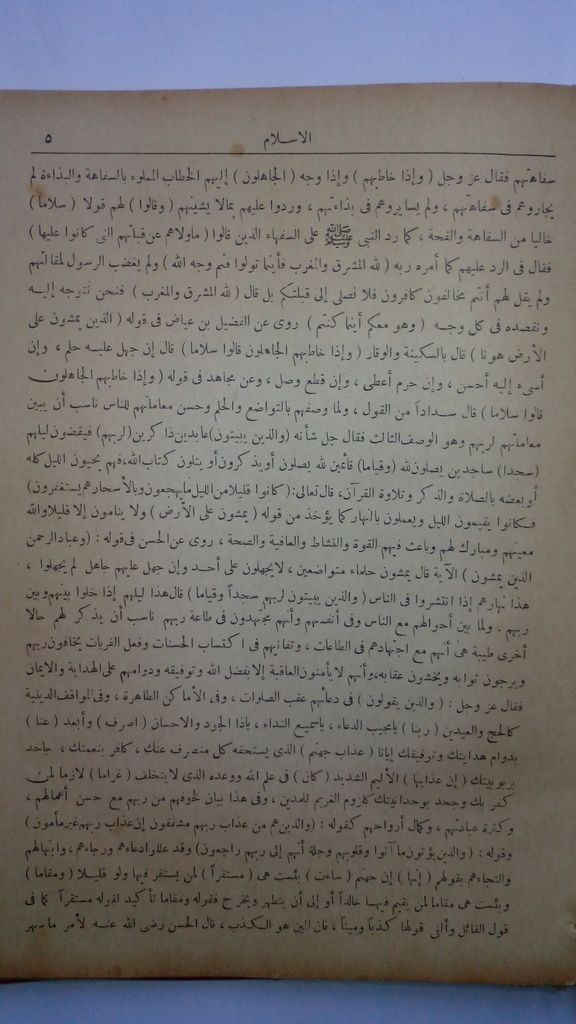 الاسلام ٥
سفاهتهم فقال عز وجل ( وإذا خاطبهم ) وإذا وجه ( الجاهلون ) إليهم الخطاب المملوء بالسفاهة والبذاءة لم
يجاروهم فى سفاهتهم ، ولم يسايروهم فى بذاءتهم ، وردوا عليهم بمالا يشينهم ( وقالوا ) لهم قولا ( سلاما )
خاليا من السفاهة والقحة ، كما رد النبى ﷺ على السفهاء الذين قالوا ( ماولاهم عن قبلتهم التى كانوا عليها )
فقال فى الرد عليهم كما أمره ربه ( لله المشرق والمغرب فأينما تولوا فثم وجه الله ) ولم يغضب الرسول لمقالتهم
ولم يقل لهم أنتم مخالفون كافرون فلا نصلى إلى قبلتكم بل قال ( لله المشرق والمغرب ) فنحن نتوجه إليه
ونقصده فى كل وجه ( وهو معكم أينما كنتم ) روى عن الفضيل بن عياض فى قوله ( الذين يمشون على
الأرض هونا ) قال بالسكينة والوقار ( وإذا خاطبهم الجاهلون قالوا سلاما ) قال إن جهل عليه حلم ، وإن
أسىء إليه أحسن ، وإن حرم أعطى ، وإن قطع وصل ، وعن مجاهد فى قوله ( وإذا خاطبهم الجاهلون
قالوا سلاما ) قال سداداً من القول ، ولما وصفهم بالتواضع والحلم وحسن معاملتهم للناس ناسب أن يبين
معاملتهم لربهم وهو الوصف الثالث فقال جل شأنه (والذين يبيتون) عابدين ذاكرين (لربهم) فيقضون ليلهم
(سجدا) ساجدين يصلون لله (وقياما) قائمين لله يصلون أو يذكرون أو يتلون كتاب الله، فهم يحيون الليل كله
أو بعضه بالصلاة والذكر وتلاوة القرآن، قال تعالى: (كانوا قليلا من الليل ما يهجعون وبالأسحار هم يستغفرون)
فكانوا يقيمون الليل ويعملون بالنهار كما يؤخذ من قوله ( يمشون على الأرض ) ولا ينامون إلا قليلا والله
معينهم ومبارك لهم وباعث فيهم القوة والنشاط والعافية والصحة ، روى عن الحسن فى قوله : (وعباد الرحمن
الذين يمشون ) الآية قال يمشون حلماء متواضعين ، لا يجهلون على أحد وإن جهل عليهم جاهل لم يجهلوا ،
هذا نهارهم إذا انتشروا فى الناس ( والذين يبيتون لربهم سجداً وقياما ) قال هذا ليلهم إذا خلوا بينهم وبين
ربهم . ولما بين أحوالهم مع الناس وفى أنفسهم وأنهم مجتهدون فى طاعة ربهم ناسب أن يذكر لهم حالا
أخرى طيبة هى أنهم مع اجتهادهم فى الطاعات ، وتفانيهم فى اكتساب الحسنات وفعل القربات يخافون ربهم
ويرجون ثوابه ويخشون عقابه، وأنهم لا يأمنون العاقبة إلا بفضل الله وتوفيقه ودوامهم على الهداية والايمان
فقال عز وجل : ( والذين يقولون ) فى دعائهم عقب الصلوات ، وفى الأماكن الطاهرة ، وفى المواقف الدينية
كالحج والعيدين ( ربنا ) يامجيب الدعاء ، ياسميع النداء ، ياذا الجود والاحسان ( اصرف ) وأبعد ( عنا )
بدوام هدايتك وتوفيقك إيانا ( عذاب جهنم ) الذى يستحقه كل منصرف عنك ، كافر بنعمتك ، جاحد
بربوبيتك ( إن عذابها ) الأليم الشديد ( كان ) فى علم الله ووعده الذى لا يتخلف ( غراما ) لازما لمن
كفر بك وجحد بوحدانيتك كلزوم الغريم للمدين ، وفى هذا بيان لخوفهم من ربهم مع حسن أعمالهم ،
وكثرة عبادتهم ، وكمال أرواحهم كقوله : (والذين هم من عذاب ربهم مشفقون إن عذاب ربهم غير مأمون)
وقوله : (والذين يؤتون ما آتوا وقلوبهم وجلة أنهم إلى ربهم راجعون) وقد عللوا دعاءهم ورجاءهم ، وابتهالهم
والتجاءهم بقولهم ( إنها ) إن جهنم ( ساءت ) بئست هى ( مستقراً ) لمن يستقر فيها ولو قليلا ( ومقاما )
وبئست هى مقاما لمن يقيم فيها خالداً أو إلى أن يتطهر ويخرج فقوله ومقاما تأكيد لقوله مستقراً كما فى
قول القائل وألفى قولها كذباً وميناً ، فان المين هو الكذب ، قال الحسن رضى الله عنه لأمر ما سهر